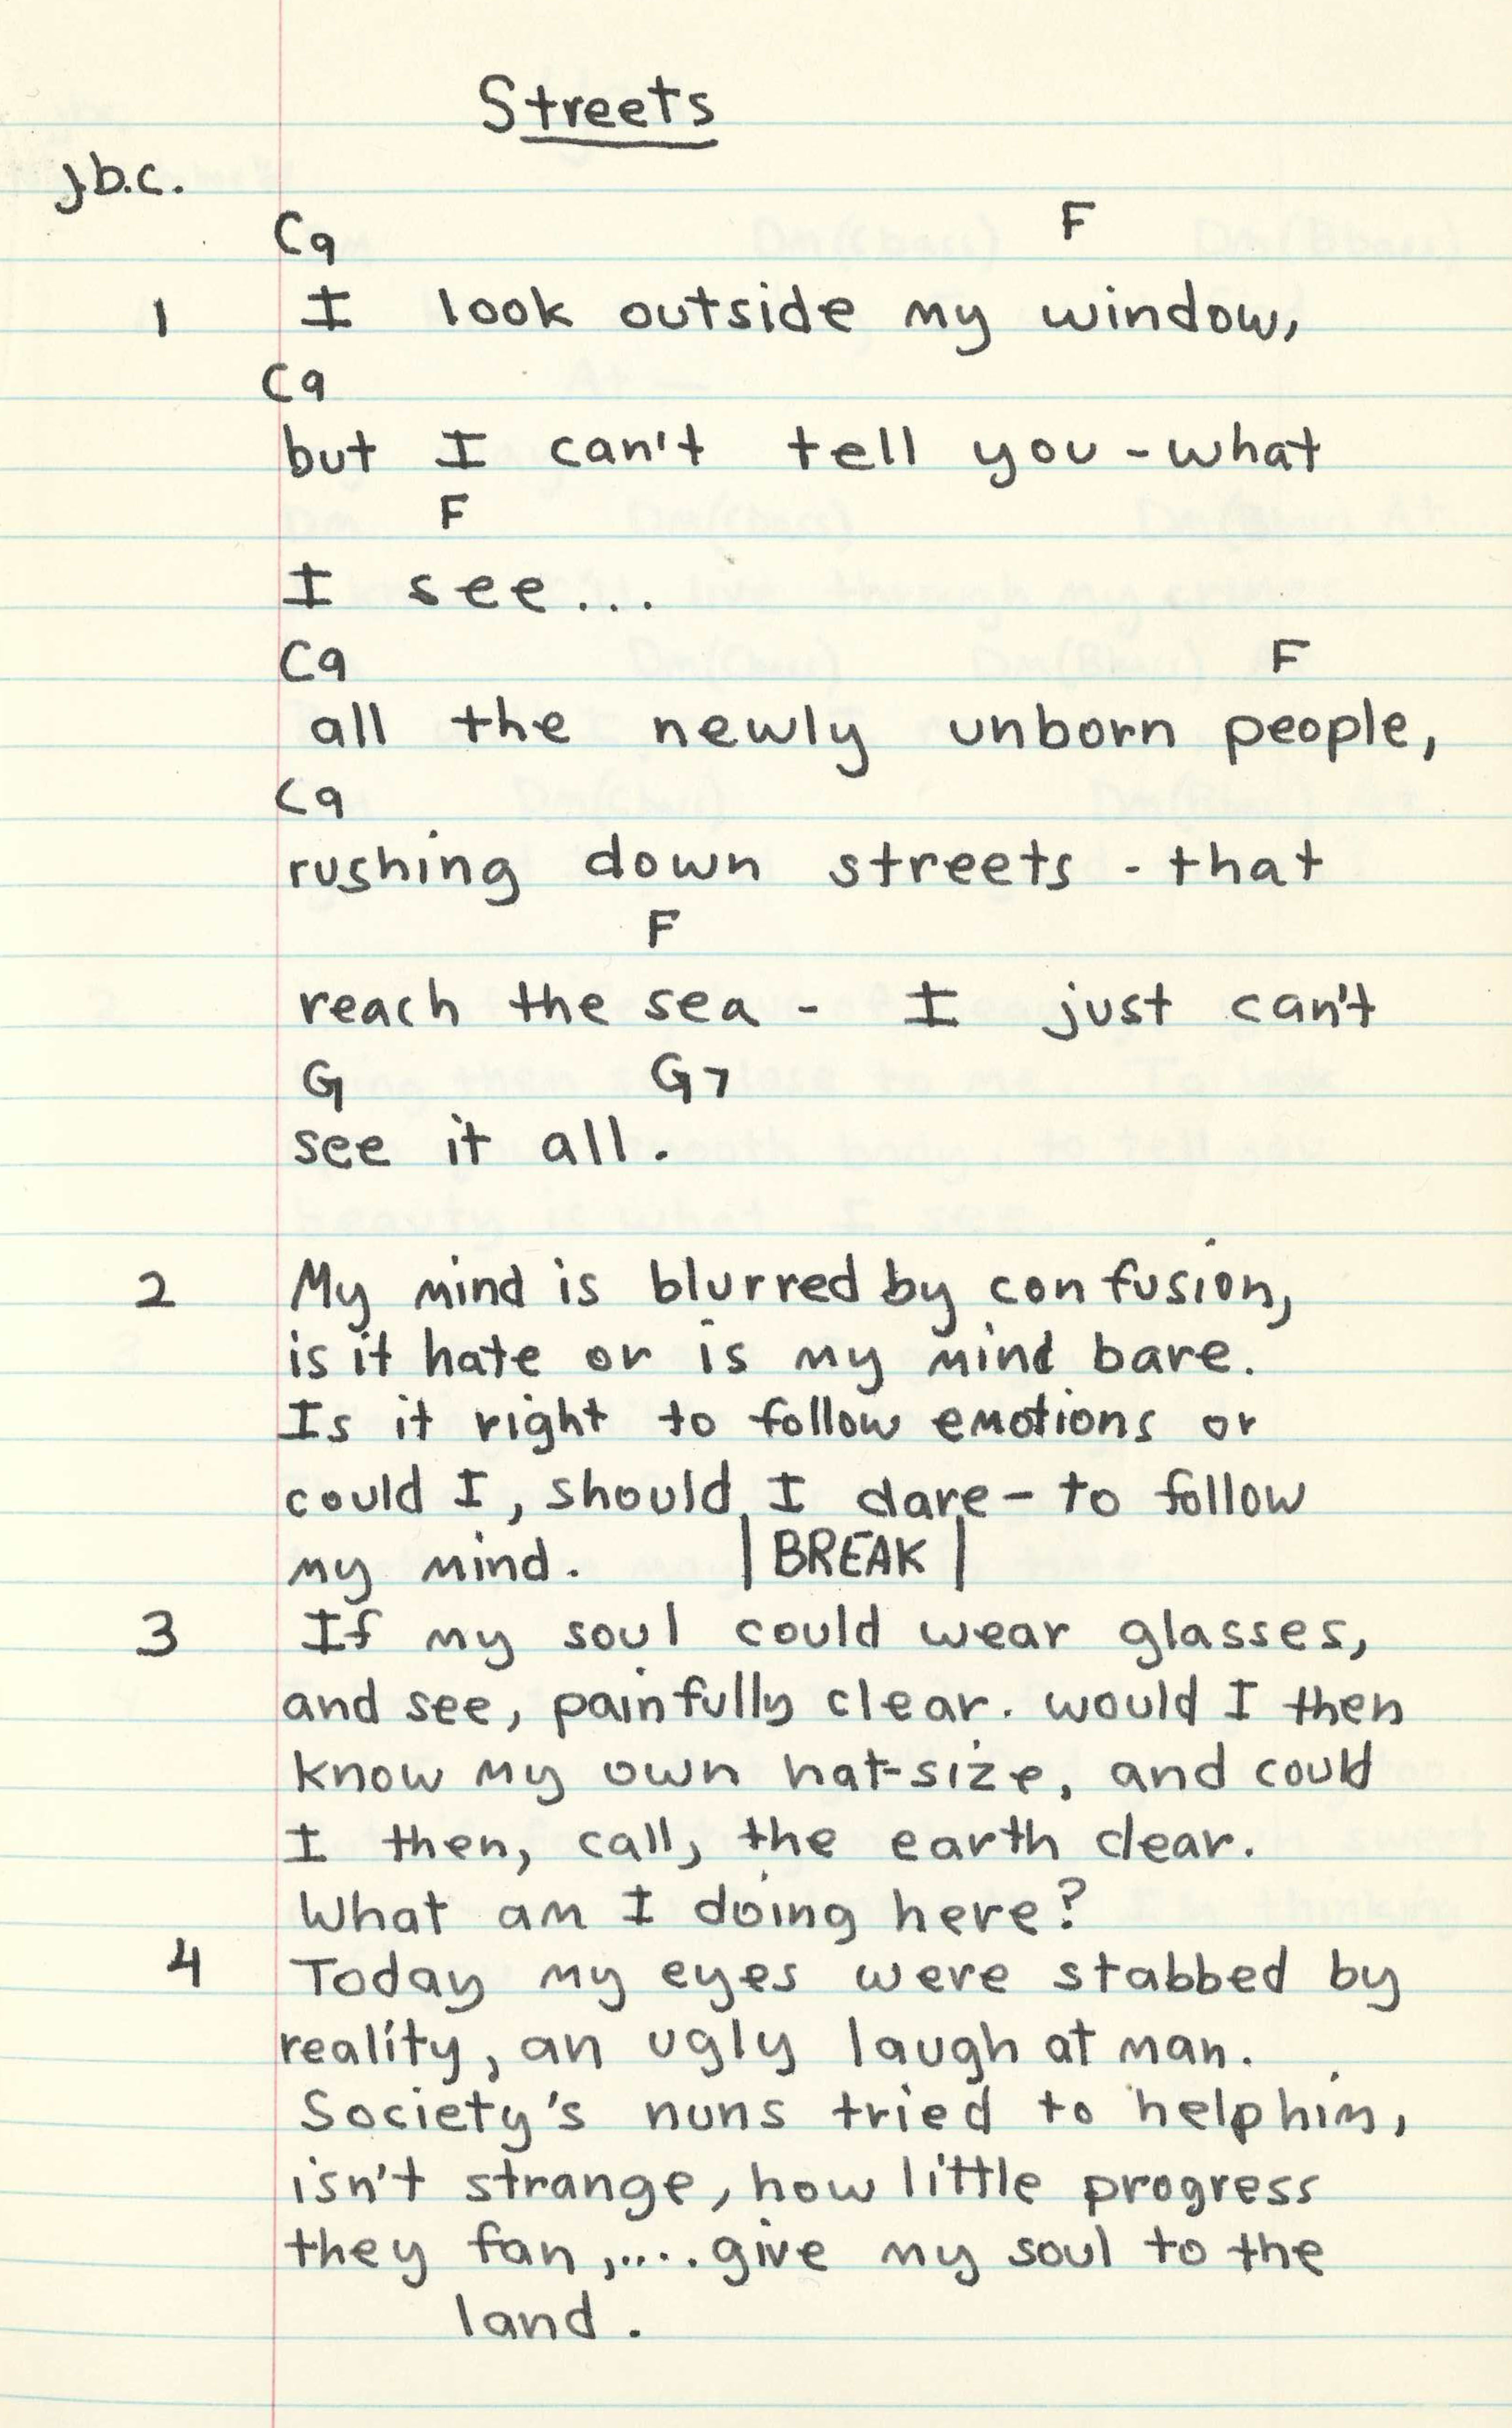 Streets
j.b.c.
C9 F
1 I look outside my window,
C9
but I can't tell you - what
F
I see...
C9 F
all the newly unborn people,
C9
rushing down streets - that
F
reach the sea - I just can't
G G7
see it all.
2 My mind is blurred by confusion,
is it hate or is my mind bare.
Is it right to follow emotions or
could I, should I dare - to follow
my mind. |BREAK|
3 If my soul could wear glasses,
and see, painfully clear. would I then
know my own hat-size, and could
I then, call, the earth clear.
What am I doing here?
4 Today my eyes were stabbed by
reality, an ugly laugh at man.
Society's nuns tried to help him,
isn't strange, how little progress
they fan,.... give my soul to the
land.